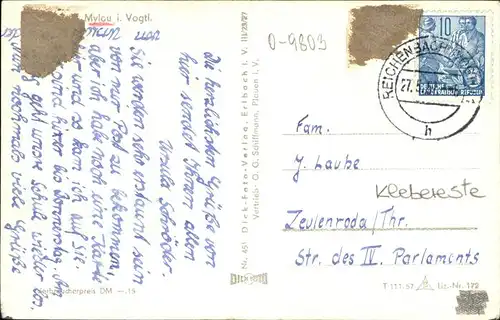 Mylau i. Vogtl.
Die herzlichsten Grüße von
hier sendet Ihnen allen
Ursula Schröder.
Sie werden sehr erstaunt sein
von mir Post zu bekommen,
aber ich habe noch eine Karte
und so kam ich auf Sie.
wird hier bis Donnerstag.
geht unsere Schule wieder los.
Nochmals viele Grüße
von
Verbraucherpreis DM —.15
Nr. 451 Dick-Foto-Verlag, Erlbach i. V. III/23/27
Vertrieb: O. G. Schiffmann, Plauen i. V.
DICK FOTO
0-9803
10
DEUTSCHE
DEMOKRATISCHE REPUBLIK
REICHENBACH
27.
h
Fam.
J. Laube
Klebereste
Zeulenroda/Thr.
Str. des IV. Parlaments
T 111/57 Liz.-Nr. 172